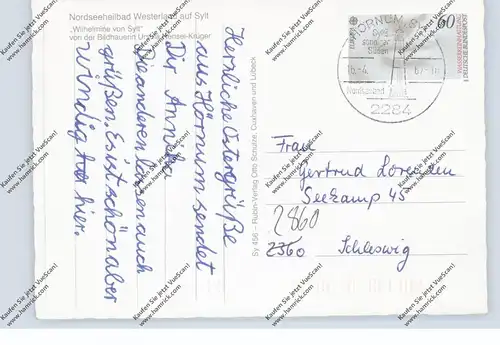 Nordseeheilbad Westerland auf Sylt
"Wilhelmine von Sylt"
von der Bildhauerin Ursula Hensel-Krüger
Herzliche Ostergrüße
aus Hörnum sendet
Dir Annika
Die anderen lassen auch
grüßen. Es ist schön aber
windig hier.
Sy 456 – Rubin-Verlag Otto Schulze, Cuxhaven und Lübeck
EUROPA
60
DEUTSCHE BUNDESPOST
HÖRNUM
2284
Frau
Gertrud Lorenzen
Seekamp 45
2860
2360 Schleswig
Kaufen Sie jetzt VueScan!
www.hamrick.com